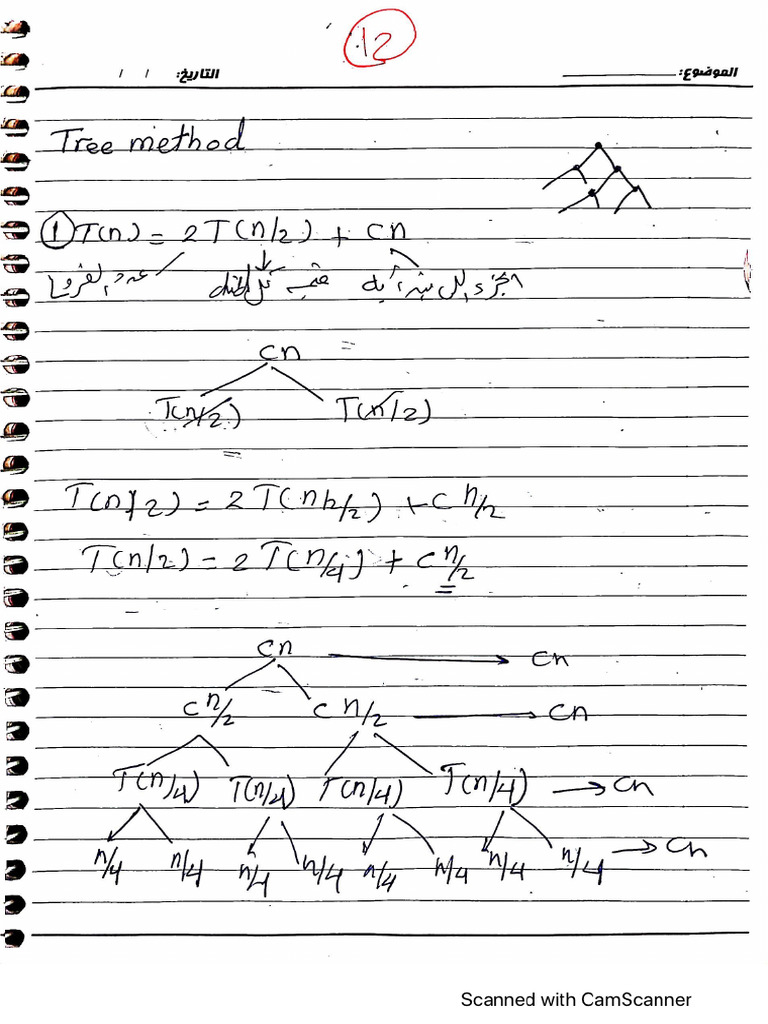 12
الموضوع: التاريخ: / /
Tree method
① T(n) = 2T(n/2) + cn
عدد الفروع
الجزء اللي
cn =
T(n/2) T(n/2)
=
T(n/2) = 2T(n/2/2) + c n/2
T(n/2) = 2T(n/4) + c n/2
cn → cn
c n/2 c n/2 → cn
T(n/4) T(n/4) T(n/4) T(n/4) → cn
n/4 n/4 n/4 n/4 n/4 n/4 n/4 n/4 → cn
Scanned with CamScanner